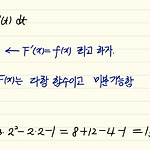 '(t) dt
← F'(x)=f(x) 라고 하자.
F(x)는 다항함수이고 미분가능함
3·2²-2·2-1 = 8+12-4-1 = 1